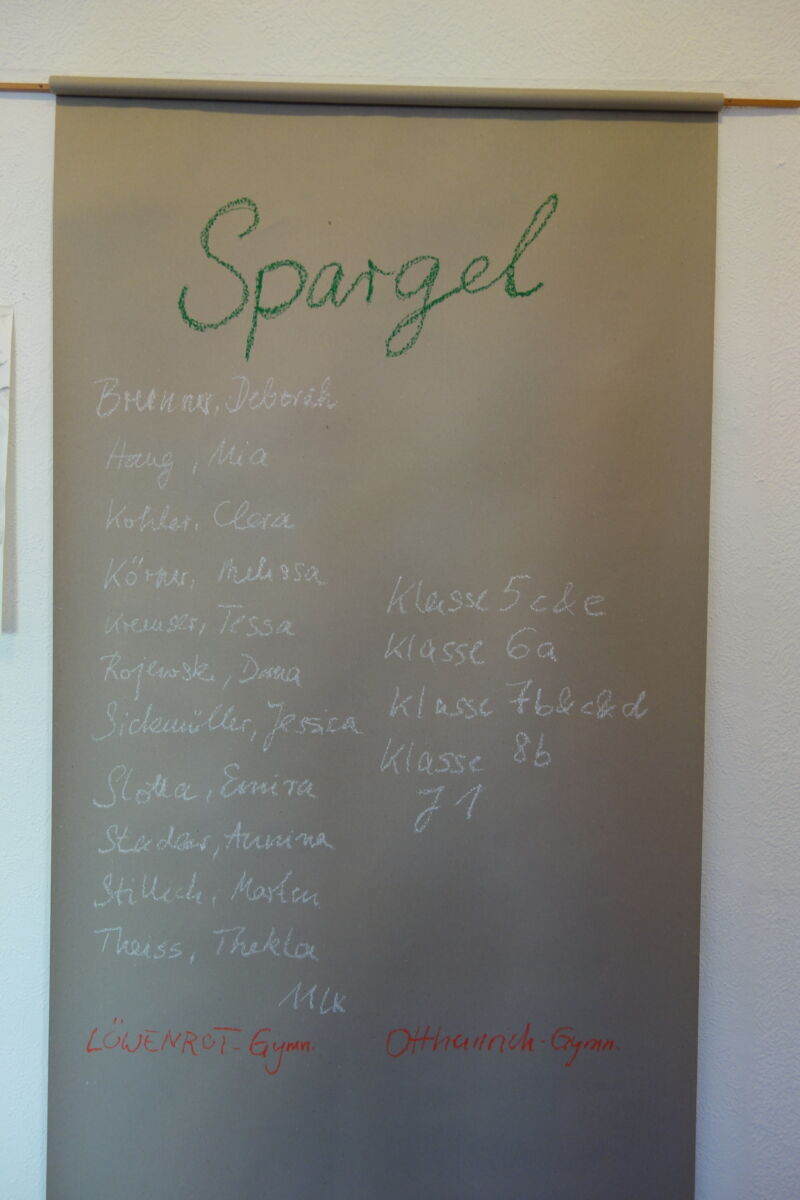 Spargel
Brenner, Deborah
Haug, Mia
Kohler, Clara
Körner, Melissa
Kremser, Tessa
Rojewski, Dana
Sickmüller, Jessica
Slotta, Emira
Annina
Marlen
Theiss, Thekla
11LK
LÖWENROT-Gymn.
Klasse 5c&e
Klasse 6a
Klasse 7b&c&d
Klasse 8b
J1
Ottheinrich-Gymn.